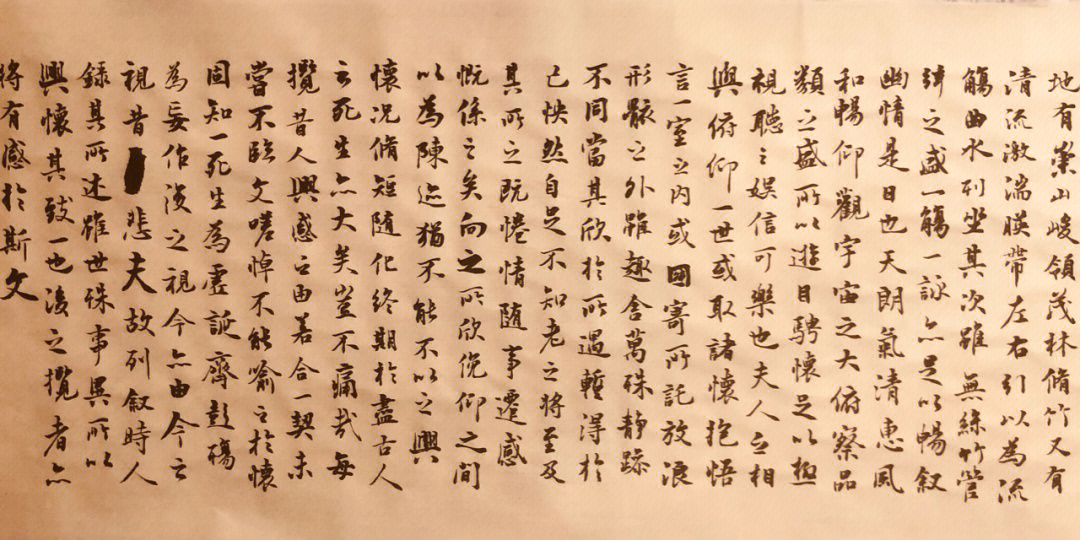 地有崇山峻領茂林脩竹又有
清流激湍暎帶左右引以為流
觴曲水列坐其次雖無絲竹管
弦之盛一觴一詠亦足以暢叙
幽情是日也天朗氣清惠風
和暢仰觀宇宙之大俯察品
類之盛所以遊目騁懷足以極
視聽之娛信可樂也夫人之相
與俯仰一世或取諸懷抱悟
言一室之内或因寄所託放浪
形骸之外雖趣舍萬殊静躁
不同當其欣於所遇蹔得於
己怏然自足不知老之將至及
其所之既惓情随事遷感
慨係之矣向之所欣俛仰之間
以為陳迹猶不能不以之興
懷況脩短随化終期於盡古人
云死生亦大矣豈不痛哉每
攬昔人興感之由若合一契未
嘗不臨文嗟悼不能喻之於懷
固知一死生為虛誕齊彭殤
為妄作後之視今亦由今之
視昔悲夫故列叙時人
録其所述雖世殊事異所以
興懷其致一也後之攬者亦
將有感於斯文